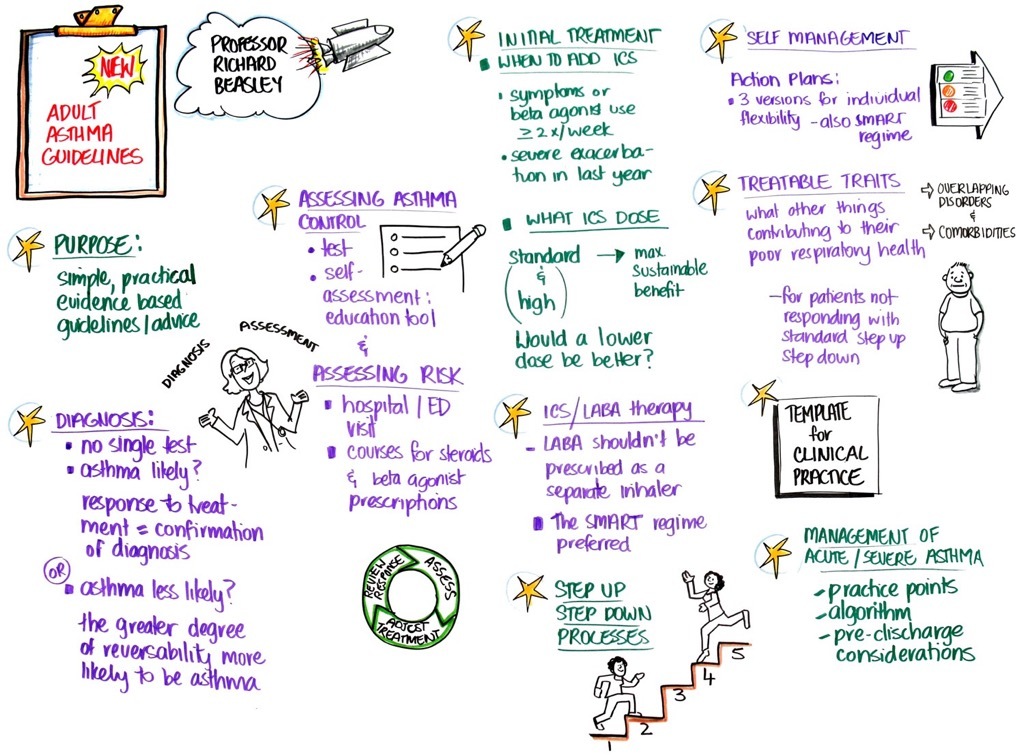 NEW
ADULT
ASTHMA
GUIDELINES
PROFESSOR
RICHARD
BEASLEY
PURPOSE:
simple, practical
evidence based
guidelines/advice
DIAGNOSIS
ASSESSMENT
DIAGNOSIS:
no single test
asthma likely?
response to treat-
ment = confirmation
of diagnosis
OR
asthma less likely?
the greater degree
of reversability more
likely to be asthma
ASSESSING ASTHMA
CONTROL
test
self-
assessment:
education tool
&
ASSESSING RISK
hospital / ED
visit
courses for steroids
& beta agonist
prescriptions
ASSESS
ADJUST
TREATMENT
REVIEW
RESPONSE
INITIAL TREATMENT
WHEN TO ADD ICS
symptoms or
beta agonist use
≥ 2x/week
severe exacerba-
tion in last year
WHAT ICS DOSE
Standard → max.
& sustainable
(high) benefit
Would a lower
dose be better?
ICS/LABA therapy
- LABA shouldn't be
prescribed as a
separate inhaler
The SMART regime
preferred
STEP UP
STEP DOWN
PROCESSES
1
2
3
4
5
SELF MANAGEMENT
Action Plans:
3 versions for individual
flexibility - also SMART
regime
TREATABLE TRAITS
what other things
contributing to their
poor respiratory health
⇨ OVERLAPPING
DISORDERS
&
⇨ COMORBIDITIES
- for patients not
responding with
standard step up
step down
TEMPLATE
for
CLINICAL
PRACTICE
MANAGEMENT OF
ACUTE/SEVERE ASTHMA
- practice points
- algorithm
- pre-discharge
considerations